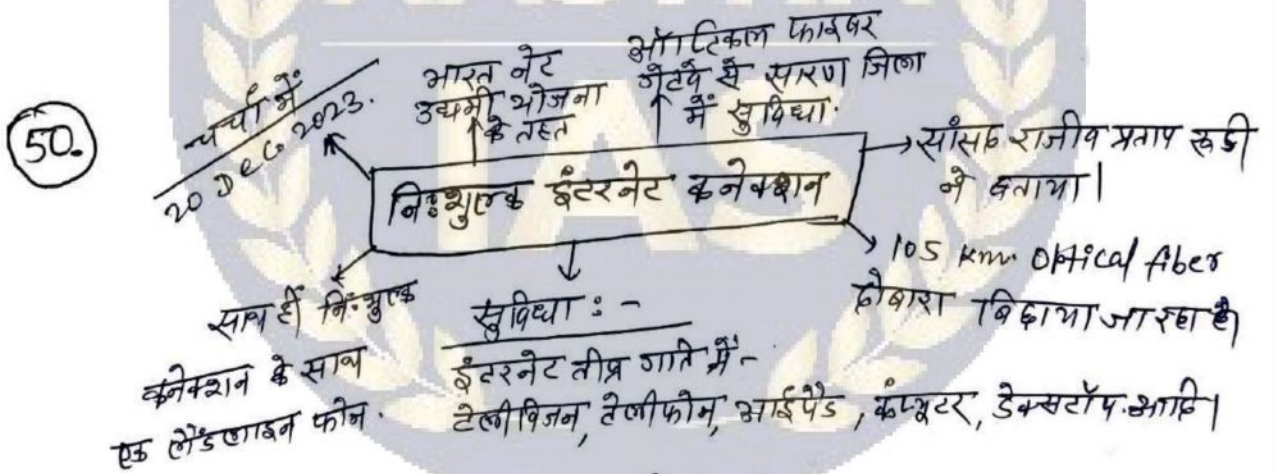 50.
चर्चा में
20 Dec. 2023.
भारत नेट
उद्यमी योजना
के तहत
ऑप्टिकल फाइबर
गेटवे से सारण जिला
में सुविधा.
निःशुल्क इंटरनेट कनेक्शन
सांसद राजीव प्रताप रूडी
ने बताया।
105 km. Optical fiber
दोबारा बिछाया जा रहा है।
साथ ही निःशुल्क
कनेक्शन के साथ
एक लैंडलाइन फोन.
सुविधा : -
इंटरनेट तीव्र गति में -
टेलीविजन, टेलीफोन, आईपैड, कंप्यूटर, डेक्सटॉप. आदि।
IAS